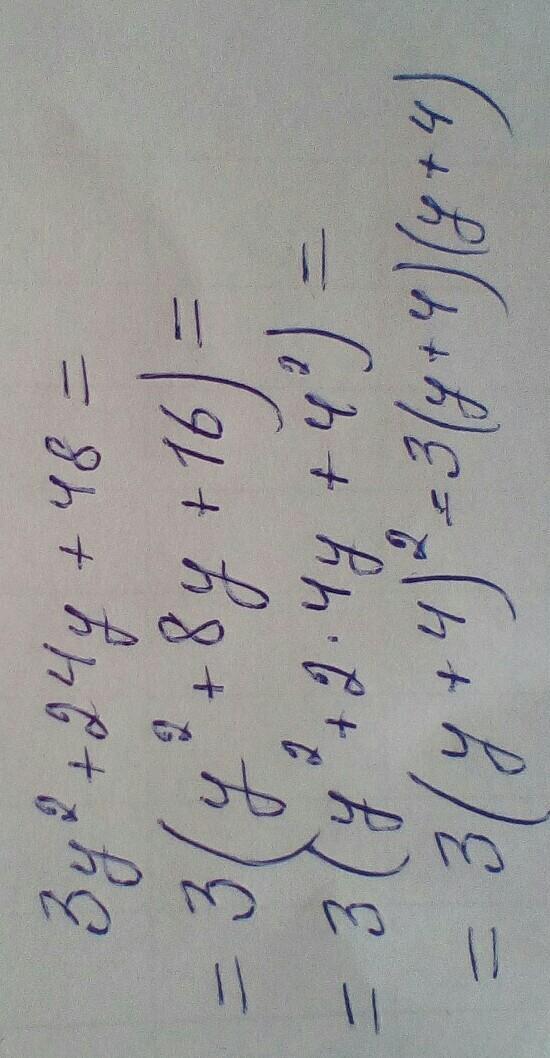 3y² + 24y + 48 =
= 3(y² + 8y + 16) =
= 3(y² + 2·4y + 4²) =
= 3(y + 4)² = 3(y + 4)(y + 4)